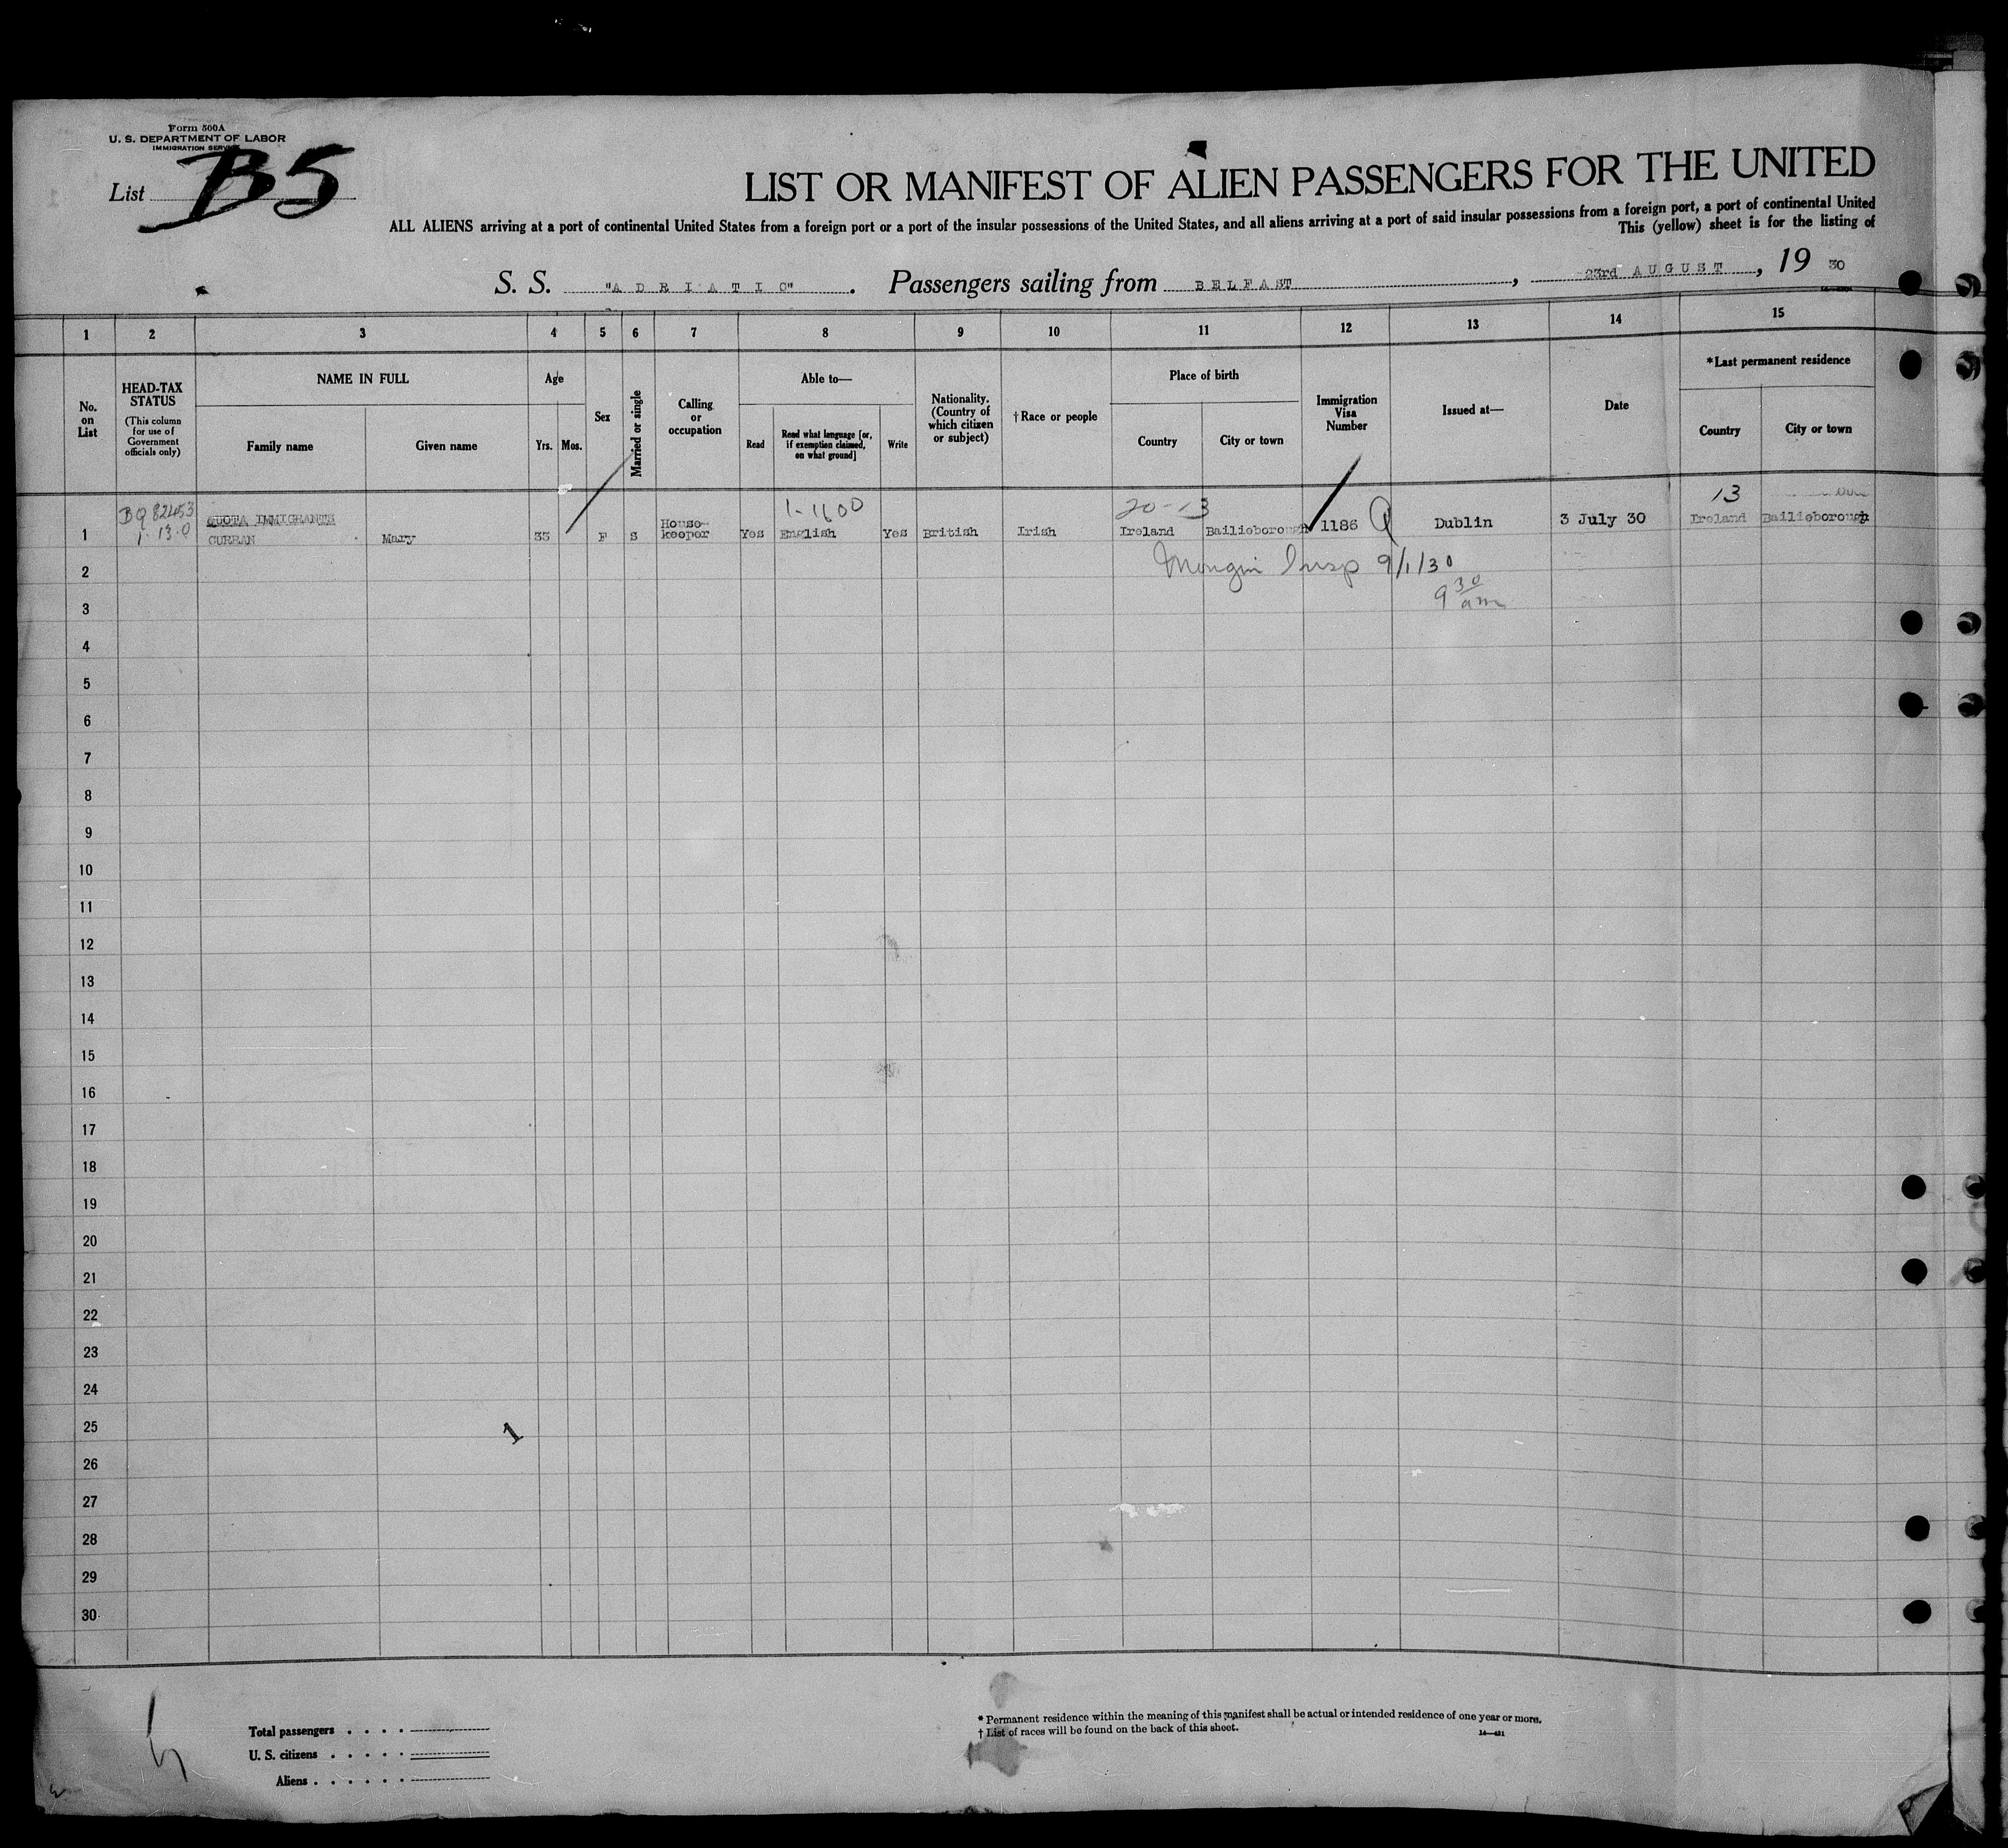 Form 500A
U. S. DEPARTMENT OF LABOR
IMMIGRATION SERVICE
List B5
LIST OR MANIFEST OF ALIEN PASSENGERS FOR THE UNITED
ALL ALIENS arriving at a port of continental United States from a foreign port or a port of the insular possessions of the United States, and all aliens arriving at a port of said insular possessions from a foreign port, a port of continental United
This (yellow) sheet is for the listing of
S. S. "ADRIATIC". Passengers sailing from BELFAST, 23rd AUGUST, 19 30
1 2 3 4 5 6 7 8 9 10 11 12 13 14 15
No. on List
HEAD-TAX STATUS
(This column for use of Government officials only)
NAME IN FULL
Family name Given name
Age
Yrs. Mos.
Sex
Married or single
Calling or occupation
Able to—
Read
Read what language [or, if exemption claimed, on what ground]
Write
Nationality. (Country of which citizen or subject)
†Race or people
Place of birth
Country City or town
Immigration Visa Number
Issued at—
Date
*Last permanent residence
Country City or town
BQ 82453 QUOTA IMMIGRANTS 1-1600 20-13 13
1 1-13-0 CURRAN Mary 33 F S House-keeper Yes English Yes British Irish Ireland Bailieborough 1186 Q Dublin 3 July 30 Ireland Bailieborough
2 Insp 9/1/30
3 9 30 am
4
5
6
7
8
9
10
11
12
13
14
15
16
17
18
19
20
21
22
23
24
25 1
26
27
28
29
30
Total passengers . . . .
U. S. citizens . . . . .
Aliens . . . . . .
* Permanent residence within the meaning of this manifest shall be actual or intended residence of one year or more.
† List of races will be found on the back of this sheet.
14—431